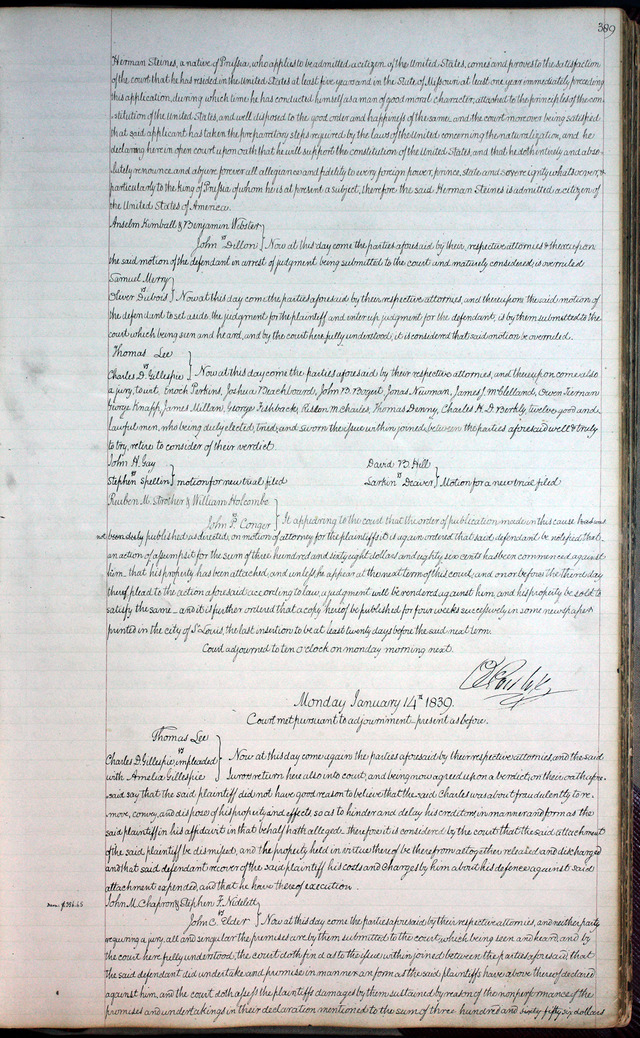 389
Herman Steines, a native of Prussia, who applies to be admitted a citizen of the United States, comes and proves to the satisfaction
of the court that he has resided in the United States at least five years and in the State of Missouri at least one year immediately preceding
this application, during which time he has conducted himself as a man of good moral character, attached to the principles of the con
stitution of the United States, and well disposed to the good order and happiness of the same, and the court moreover being satisfied
that said applicant has taken the preparatory steps required by the laws of the United concerning the naturalization, and he
declaring here in open court upon oath that he will support the constitution of the United States, and that he doth entirely and abso-
lutely renounce and abjure forever all allegiance and fidelity to every foreign power, prince, state and sovereignty whatsoever, &
particularly to the King of Prussia of whom he is at present a subject, therefore the said Herman Steines is admitted a citizen of
the United States of America.
Anselm Kimball & Benjamin Webster
vs
John Dillon } Now at this day come the parties aforesaid by their respective attornies & thereupon
the said motion of the defendant in arrest of judgment being submitted to the court and maturely considered is overruled
Samuel Merry
vs
Oliver Dubois } Now at this day come the parties aforesaid by their respective attornies, and thereupon the said motion of
the defendant to set aside the judgment for the plaintiff and enter up judgment for the defendant, is by them submitted to the
court which being seen and heard, and by the court here fully understood, it is considered that said motion be overruled.
Thomas Lee
vs
Charles D. Gillespie } Now at this day come the parties aforesaid by their respective attornies, and thereupon comes also
a jury, towit, Enoch Perkins, Joshua Brachbourd, John B. Bogert, Jonas Newman, James J. McClelland, Owen Tiernan
George Knapp, James Millan, George Fishback, McCharles, Thomas Denny, Charles H. D. twelve good and
lawful men, who being duly elected, tried, and sworn the issue within joined between the parties aforesaid well & truly
to try, retire to consider of their verdict
John H. Gay
vs
Stephen } motion for new trial filed
David B Hill
vs
Larkin Deaver } Motion for a new trial filed
Reuben M. Strother & William Holcombe
vs
John P. Conger } It appearing to the court that the order of publication made in this cause has
not been duly published as directed, on motion of attorney for the plaintiffs it is again ordered that said defendant be notified that
an action of assumpsit for the sum of three hundred and sixty eight dollars and eighty six cents has been commenced against
him, that his property has been attached, and unless he appear at the next term of this court, and on or before the third day
thereof plead to the action aforesaid according to law, a judgment will be rendered against him, and his property be sold to
satisfy the same - and it is further ordered that a copy hereof be published for four weeks successively in some newspaper
printed in the city of St Louis, the last insertion to be at least twenty days before the said next term.
Court adjourned to ten o'clock on monday morning next.
Monday January 14th 1839.
Court met pursuant to adjournment present as before.
Thomas Lee
vs
Charles D. Gillespie impleaded
with Amelia Gillespie } Now at this day come again the parties aforesaid by their respective attornies, and the said
jurors return here also into court, and being now agreed upon a verdict on their oath afore
said say that the said plaintiff did not have good reason to believe that the said Charles was about fraudulently to re-
move, convey, and dispose of his property and effects, so as to hinder and delay his creditors, in manner and form as the
said plaintiff in his affidavit in that behalf hath alledged. therefore it is considered by the court that the said attachment
of the said plaintiff be dismissed, and the property held in virtue thereof be therefrom altogether released and discharged
and that said defendant recover of the said plaintiff his costs and charges by him about his defence against said
attachment expended, and that he have thereof execution.
John M. Chapron & Stephen F. Nidelet
vs
John C. Elder } Now at this day come the parties aforesaid by their respective attornies, and neither party
requiring a jury, all and singular the premises are by them submitted to the court, which being seen and heard, and by
the court here fully understood, the court doth find as to the issue within joined between the parties aforesaid that
the said defendant did undertake and promise in manner an form as the said plaintiffs have above thereof declared
against him, and the court doth assess the plaintiffs damages by them sustained by reason of the nonperformance of the
promises and undertakings in their declaration mentioned to the sum of three hundred and fifty six dollars